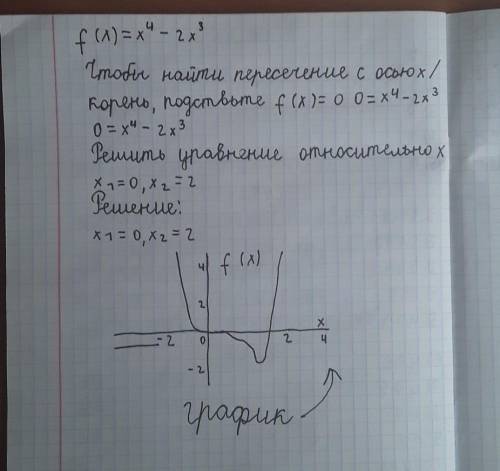 f(x)=x⁴-2x³
Чтобы найти пересечение с осью х/
корень, подствьте f(x)=0 0=x⁴-2x³
0=x⁴-2x³
Решить уравнение относительно х
x₁=0, x₂=2
Решение:
x₁=0, x₂=2
4 f(x)
2
x
-2 0 2 4
-2
график